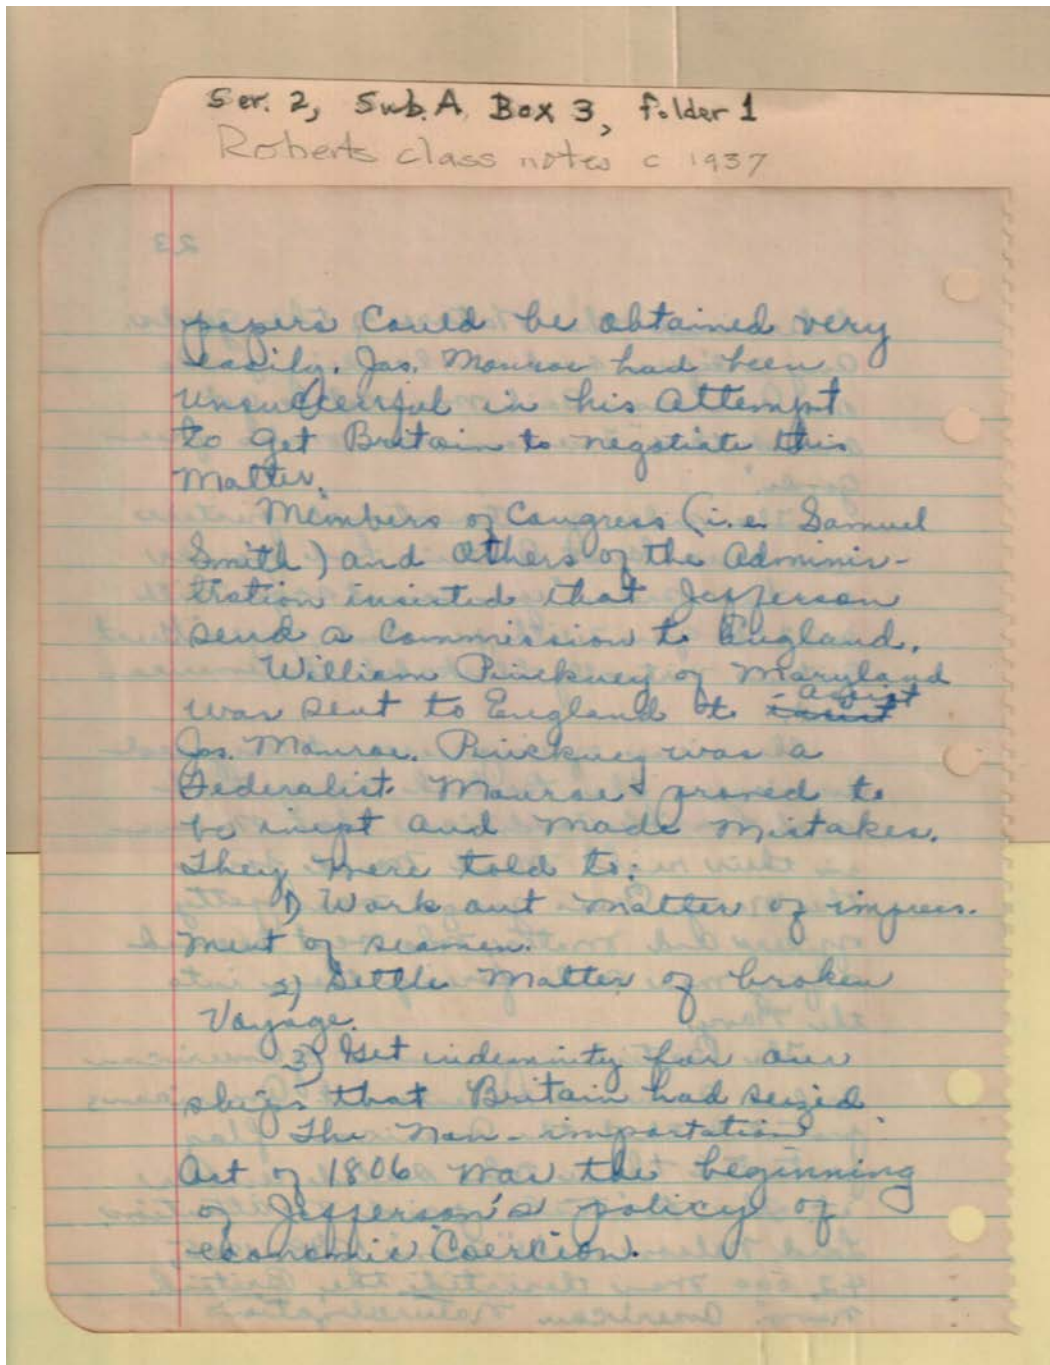 Ser. 2, Sub. A, Box 3, folder 1
Roberts class notes c 1937
23
papers could be obtained very
easily. Jas. Monroe had been
unsuccessful in his attempt
to get Britain to negotiate this
matter.
Members of Congress (i.e. Samuel
Smith) and others of the Adminis-
tration insisted that Jefferson
send a commission to England.
William Pinckney of Maryland
assist
was sent to England to insist
Jas. Monroe. Pinckney was a
Federalist. Monroe proved to
be inept and made mistakes.
They were told to:
1) Work out matter of impress-
ment of seamen.
2) Settle matter of broken
Voyage.
3) Get indemnity for our
ships that Britain had seized
The Non-importation
Act of 1806 was the beginning
of Jefferson's policy of
economic Coercion.